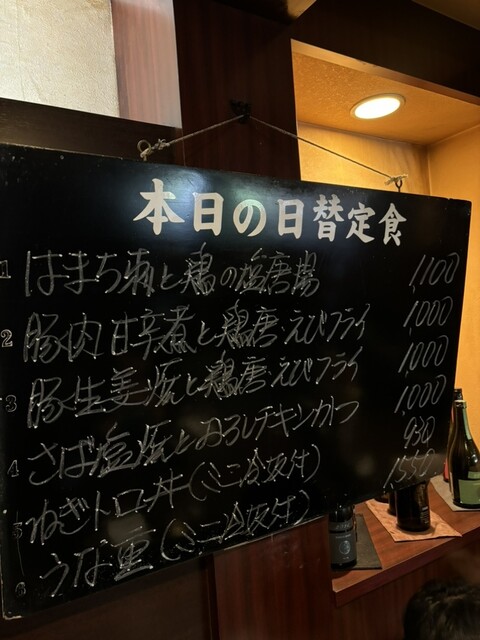 本日の日替定食
1 はまち煮と鶏の塩唐揚 1,100
2 豚肉甘辛煮と鶏唐・えびフライ 1,000
3 豚生姜焼と鶏唐・えびフライ 1,000
4 さば塩焼とおろしチキンカツ 1,000
5 ねぎトロ丼(ミニ 付) 930
6 うな重(ミニ 付) 1,550